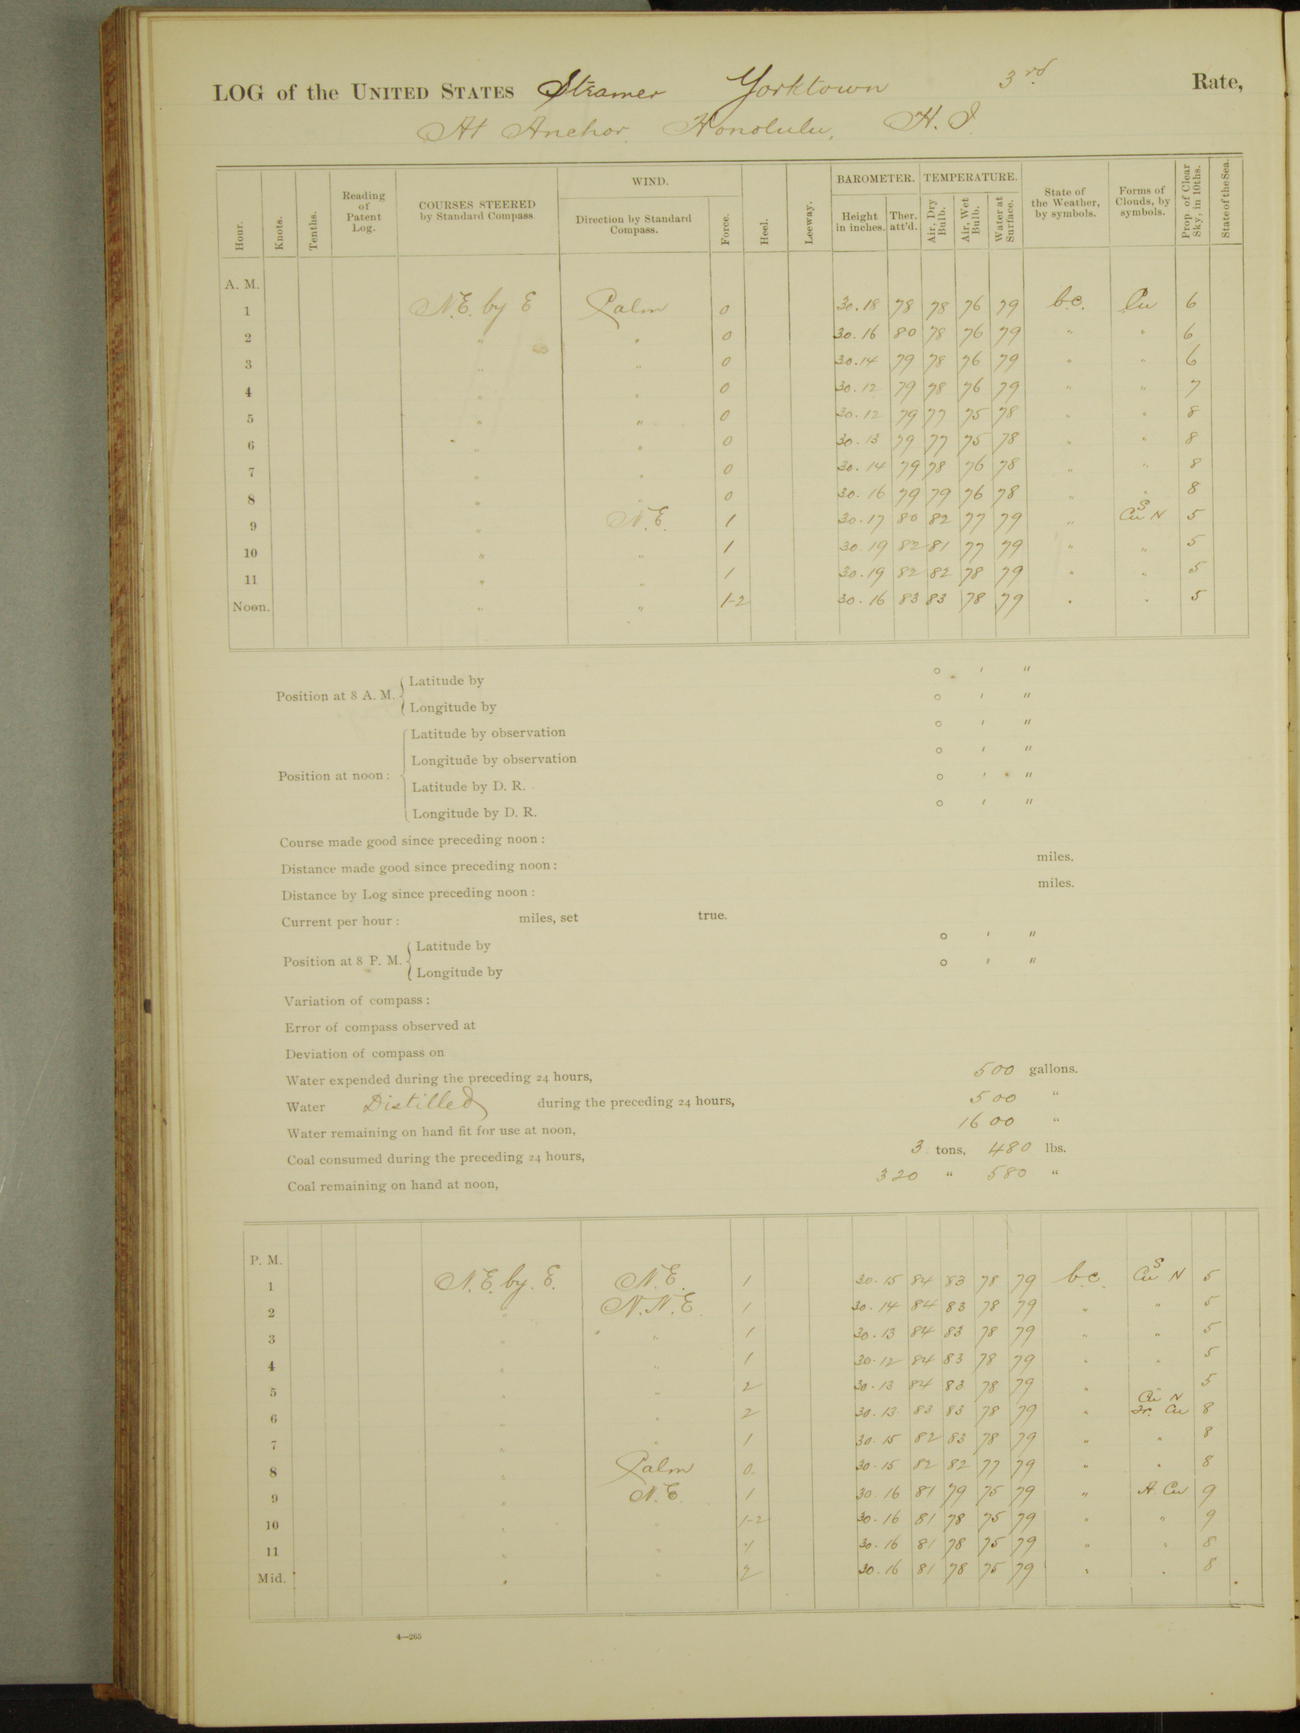 LOG of the UNITED STATES Steamer Yorktown 3rd Rate,
At Anchor, Honolulu, H. I.
Hour. Knots. Tenths. Reading of Patent Log. COURSES STEERED by Standard Compass WIND. Direction by Standard Compass. Force. Heel. Leeway. BAROMETER. Height in inches. Ther. att'd. TEMPERATURE. Air, Dry Bulb. Air, Wet Bulb. Water at Surface. State of the Weather, by symbols. Forms of Clouds, by symbols. Prop. of Clear Sky, in 10ths. State of the Sea.
A. M.
1 N.E. by E Calm 0 30.18 78 78 76 79 b.c. Cu 6
2 " " 0 30.16 80 78 76 79 " " 6
3 " " 0 30.14 79 78 76 79 " " 6
4 " " 0 30.12 79 78 76 79 " " 7
5 " " 0 30.12 79 77 75 78 " " 8
6 " " 0 30.13 79 77 75 78 " " 8
7 " " 0 30.14 79 78 76 78 " " 8
8 " " 0 30.16 79 79 76 78 " " 8
9 " N.E. 1 30.17 80 82 77 79 " Cu S N 5
10 " " 1 30.19 82 81 77 79 " " 5
11 " " 1 30.19 82 82 78 79 " " 5
Noon. " " 1-2 30.16 83 83 78 79 " " 5
Position at 8 A. M. Latitude by ° ' "
Longitude by ° ' "
Position at noon: Latitude by observation ° ' "
Longitude by observation ° ' "
Latitude by D. R. ° ' "
Longitude by D. R. ° ' "
Course made good since preceding noon :
Distance made good since preceding noon : miles.
Distance by Log since preceding noon : miles.
Current per hour : miles, set true.
Position at 8 P. M. Latitude by ° ' "
Longitude by ° ' "
Variation of compass :
Error of compass observed at
Deviation of compass on
Water expended during the preceding 24 hours, 500 gallons.
Water Distilled during the preceding 24 hours, 500 "
Water remaining on hand fit for use at noon, 1600 "
Coal consumed during the preceding 24 hours, 3 tons, 480 lbs.
Coal remaining on hand at noon, 320 " 580 "
P. M.
1 N.E. by. E. N.E. 1 30.15 84 83 78 79 b.c. Cu S N 5
2 " N.N.E. 1 30.14 84 83 78 79 " " 5
3 " " 1 30.13 84 83 78 79 " " 5
4 " " 1 30.12 84 83 78 79 " " 5
5 " " 2 30.13 84 83 78 79 " 5
6 " " 2 30.13 83 83 78 79 " Cu N Cu 8
7 " " 1 30.15 82 83 78 79 " " 8
8 " Calm 0 30.15 82 82 77 79 " " 8
9 " N.E. 1 30.16 81 79 75 79 " A. Cu 9
10 " 1-2 30.16 81 78 75 79 " " 9
11 " " 1 30.16 81 78 75 79 " " 8
Mid. " " 2 30.16 81 78 75 79 " " 8
4—265